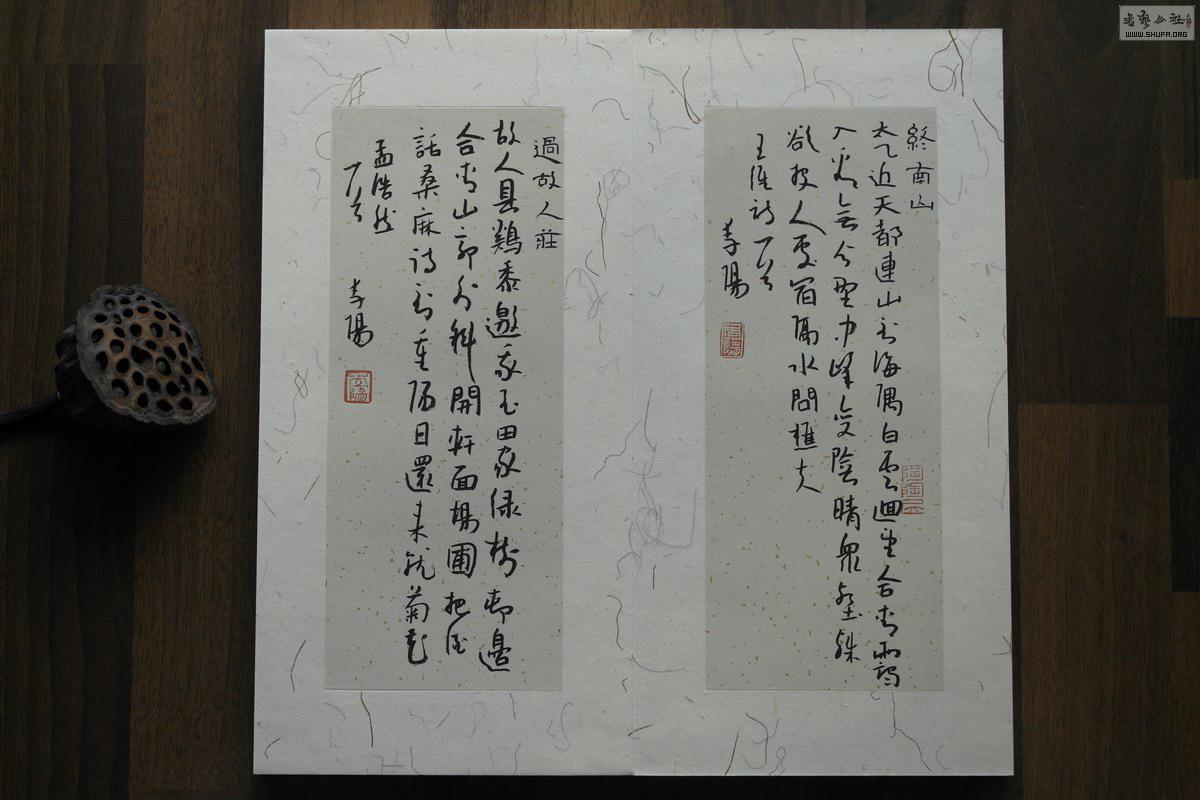 終南山
太乙近天都連山到海隅白雲迴望合青靄
入看無分野中峰變陰晴衆壑殊
欲投人處宿隔水問樵夫
王維詩一首
過故人莊
故人具鷄黍邀我至田家緑樹邨邊
合青山郭外斜開軒面場圃把酒
話桑麻待到重陽日還來就菊花
孟浩然
一首
書藝公社
WWW.SHUFA.ORG